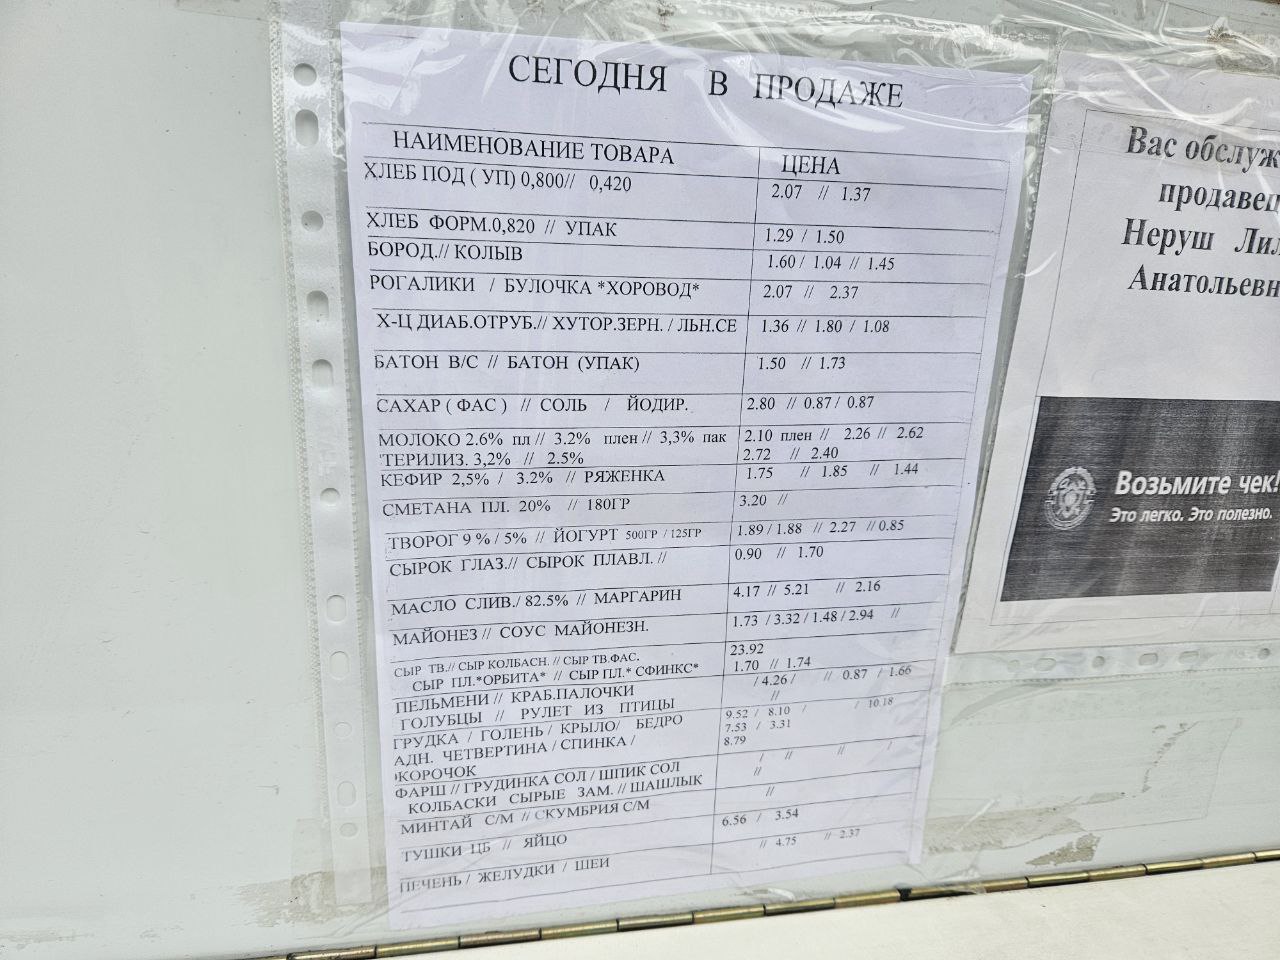 СЕГОДНЯ В ПРОДАЖЕ
НАИМЕНОВАНИЕ ТОВАРА ЦЕНА
ХЛЕБ ПОД ( УП) 0,800// 0,420 2.07 // 1.37
ХЛЕБ ФОРМ.0,820 // УПАК 1.29 / 1.50
БОРОД.// КОЛЫВ 1.60 / 1.04 // 1.45
РОГАЛИКИ / БУЛОЧКА *ХОРОВОД* 2.07 // 2.37
Х-Ц ДИАБ.ОТРУБ.// ХУТОР.ЗЕРН. / ЛЬН.СЕ 1.36 // 1.80 / 1.08
БАТОН В/С // БАТОН (УПАК) 1.50 // 1.73
САХАР ( ФАС ) // СОЛЬ / ЙОДИР. 2.80 // 0.87 / 0.87
МОЛОКО 2.6% пл // 3.2% плен // 3,3% пак 2.10 плен // 2.26 // 2.62
ТЕРИЛИЗ. 3,2% // 2.5% 2.72 // 2.40
КЕФИР 2,5% / 3.2% // РЯЖЕНКА 1.75 // 1.85 // 1.44
СМЕТАНА ПЛ. 20% // 180ГР 3.20 //
ТВОРОГ 9 % / 5% // ЙОГУРТ 500ГР / 125ГР 1.89 / 1.88 // 2.27 // 0.85
СЫРОК ГЛАЗ.// СЫРОК ПЛАВЛ. // 0.90 // 1.70
МАСЛО СЛИВ./ 82.5% // МАРГАРИН 4.17 // 5.21 // 2.16
МАЙОНЕЗ // СОУС МАЙОНЕЗН. 1.73 / 3.32 / 1.48 / 2.94 //
СЫР ТВ.// СЫР КОЛБАСН. // СЫР ТВ.ФАС. 23.92
СЫР ПЛ.*ОРБИТА* // СЫР ПЛ.* СФИНКС* 1.70 // 1.74
ПЕЛЬМЕНИ // КРАБ.ПАЛОЧКИ / 4.26 / // 0.87 / 1.66
ГОЛУБЦЫ // РУЛЕТ ИЗ ПТИЦЫ //
ГРУДКА / ГОЛЕНЬ / КРЫЛО/ БЕДРО 9.52 / 8.10 / / 10.18
АДН. ЧЕТВЕРТИНА / СПИНКА / 7.53 / 3.31
ЖОРОЧОК 8.79
ФАРШ // ГРУДИНКА СОЛ / ШПИК СОЛ / // // /
КОЛБАСКИ СЫРЫЕ ЗАМ. // ШАШЛЫК //
МИНТАЙ С/М // СКУМБРИЯ С/М //
ТУШКИ ЦБ // ЯЙЦО 6.56 / 3.54
ПЕЧЕНЬ / ЖЕЛУДКИ / ШЕИ // 4.75 // 2.37
Вас обслуж
продавец
Неруш Лил
Анатольевн
Возьмите чек!
Это легко. Это полезно.